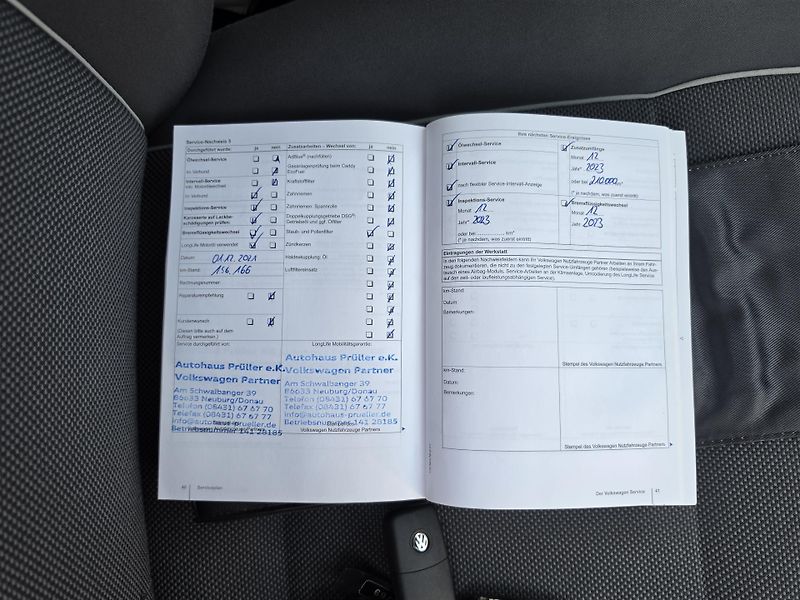 Service-Nachweis 5
Durchgeführt wurde: ja nein
Ölwechsel-Service
im Verbund
Intervall-Service
inkl. Motorölwechsel
im Verbund
Inspektions-Service
Karosserie auf Lackbe-
schädigungen prüfen:
Bremsflüssigkeitswechsel
LongLife Mobilität verwendet
Datum: 01.12.2021
km-Stand: 156.166
Rechnungsnummer:
Reparaturempfehlung
Kundenwunsch
(Diesen bitte auch auf dem
Auftrag vermerken.)
Service durchgeführt von:
Autohaus Prüller e.K.
Volkswagen Partner
Am Schwalbanger 39
86633 Neuburg/Donau
Telefon (08431) 67 67 70
Telefax (08431) 67 67 77
info@autohaus-prueller.de
Betriebsnummer 141 28185
Zusatzarbeiten – Wechsel von: ja nein
AdBlue® (nachfüllen)
Gasanlagenprüfung beim Caddy
EcoFuel
Kraftstofffilter
Zahnriemen
Zahnriemen: Spannrolle
Doppelkupplungsgetriebe DSG®:
Getriebeöl und ggf. Ölfilter
Staub- und Pollenfilter
Zündkerzen
Haldexkupplung: Öl
Luftfiltereinsatz
LongLife Mobilitätsgarantie:
Autohaus Prüller e.K.
Volkswagen Partner
Am Schwalbanger 39
86633 Neuburg/Donau
Telefon (08431) 67 67 70
Telefax (08431) 67 67 77
info@autohaus-prueller.de
Betriebsnummer 141 28185
Volkswagen Nutzfahrzeuge Partners
40 Serviceplan
Ihre nächsten Service-Ereignisse
Ölwechsel-Service
Intervall-Service
nach flexibler Service-Intervall-Anzeige
Inspektions-Service
Monat 12
Jahr* 2023
oder bei km*
(* je nachdem, was zuerst eintritt)
Zusatzumfänge
Monat 12
Jahr* 2023
oder bei 210000 km*
(* je nachdem, was zuerst eintritt)
Bremsflüssigkeitswechsel
Monat 12
Jahr 2023
Eintragungen der Werkstatt
In den folgenden Nachweisfeldern kann Ihr Volkswagen Nutzfahrzeuge Partner Arbeiten an Ihrem Fahr-
zeug dokumentieren, die nicht zu den festgelegten Service-Umfängen gehören (beispielsweise den Aus-
tausch eines Airbag-Moduls, Service-Arbeiten an der Klimaanlage, Umstellung des LongLife Service
auf den zeit- oder laufleistungsabhängigen Service).
km-Stand:
Datum:
Bemerkungen:
Stempel des Volkswagen Nutzfahrzeuge Partners
km-Stand:
Datum:
Bemerkungen:
Stempel des Volkswagen Nutzfahrzeuge Partners
Der Volkswagen Service 41